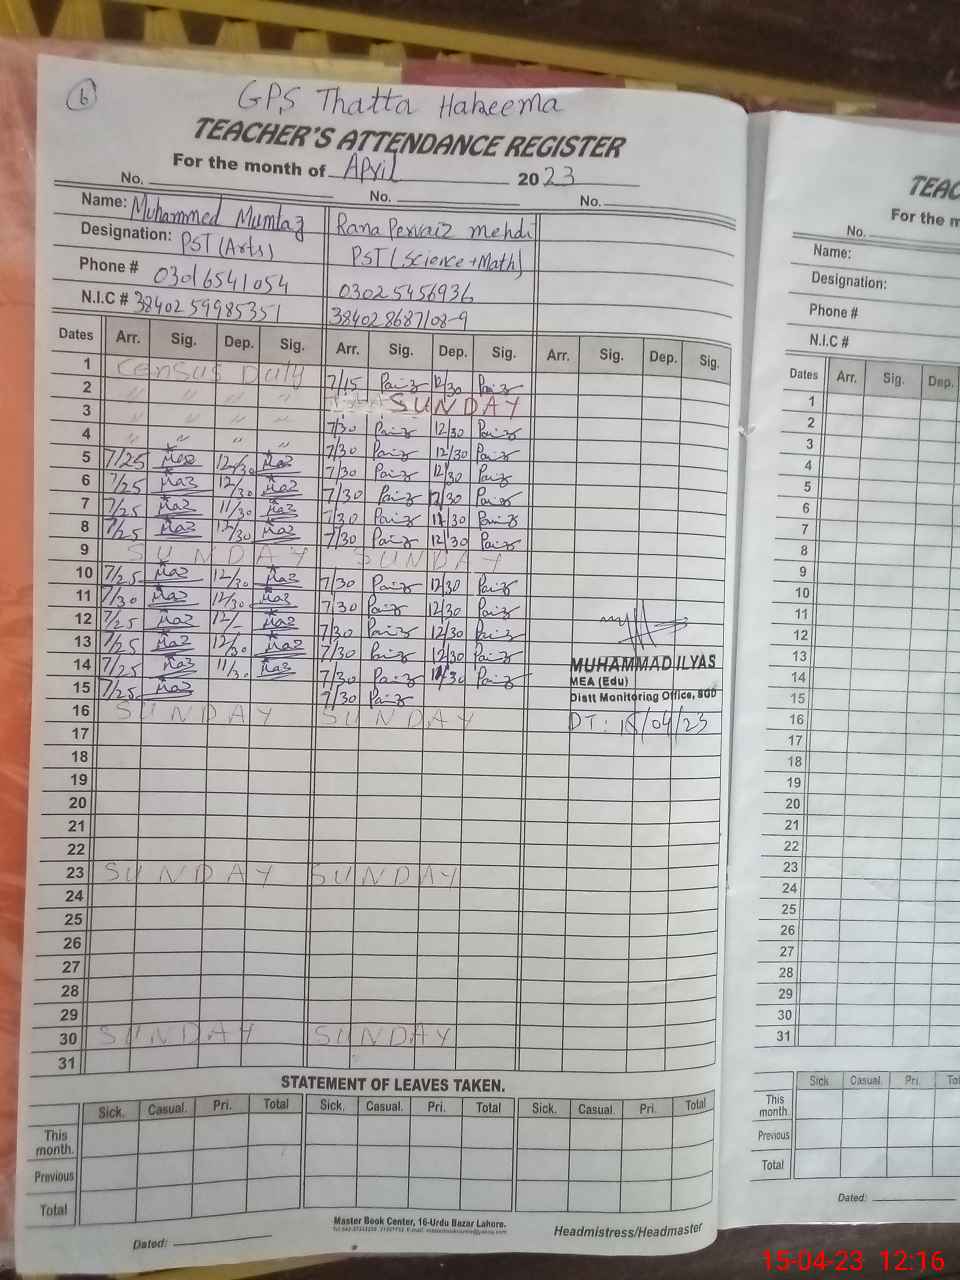 6
GPS Thatta Hakeema
TEACHER'S ATTENDANCE REGISTER
For the month of April 2023
No. No. No.
Name: Muhammed Mumtaz Rana Pervaiz mehdi
Designation: PST (Arts) PST (Science+Math)
Phone # 03016541054 03025456936
N.I.C # 3840259985351 384028687108-9
Dates Arr. Sig. Dep. Sig. Arr. Sig. Dep. Sig. Arr. Sig. Dep. Sig.
1 Census Duty 7/15 12/30
2 " " " " SUNDAY
3 " " " " 7/30 12/30
4 " " " " 7/30 12/30
5 7/25 12/30 7/30 12/30
6 7/25 12/30 7/30 12/30
7 7/25 11/30 7/30 11/30
8 7/25 12/30 7/30 12/30
9 SUNDAY SUNDAY
10 7/25 12/30 7/30 12/30
11 7/30 12/30 7/30 12/30
12 7/25 12/- 7/30 12/30
13 7/25 12/30 7/30 12/30
14 7/25 11/30 7/30 11/30
15 7/25 7/30
16 SUNDAY SUNDAY
17
18
19
20
21
22
23 SUNDAY SUNDAY
24
25
26
27
28
29
30 SUNDAY SUNDAY
31
MUHAMMAD ILYAS
MEA (Edu)
Distt Monitoring Office, SGD
DT: 15/04/23
STATEMENT OF LEAVES TAKEN.
Sick. Casual. Pri. Total Sick. Casual. Pri. Total Sick. Casual. Pri. Total
This month.
Previous
Total
Master Book Center, 16-Urdu Bazar Lahore.
Dated: Headmistress/Headmaster
TEAC
For the m
No.
Name:
Designation:
Phone #
N.I.C #
Dates Arr. Sig. Dep.
1
2
3
4
5
6
7
8
9
10
11
12
13
14
15
16
17
18
19
20
21
22
23
24
25
26
27
28
29
30
31
Sick. Casual. Pri. To
This month.
Previous
Total
Dated:
15-04-23 12:16